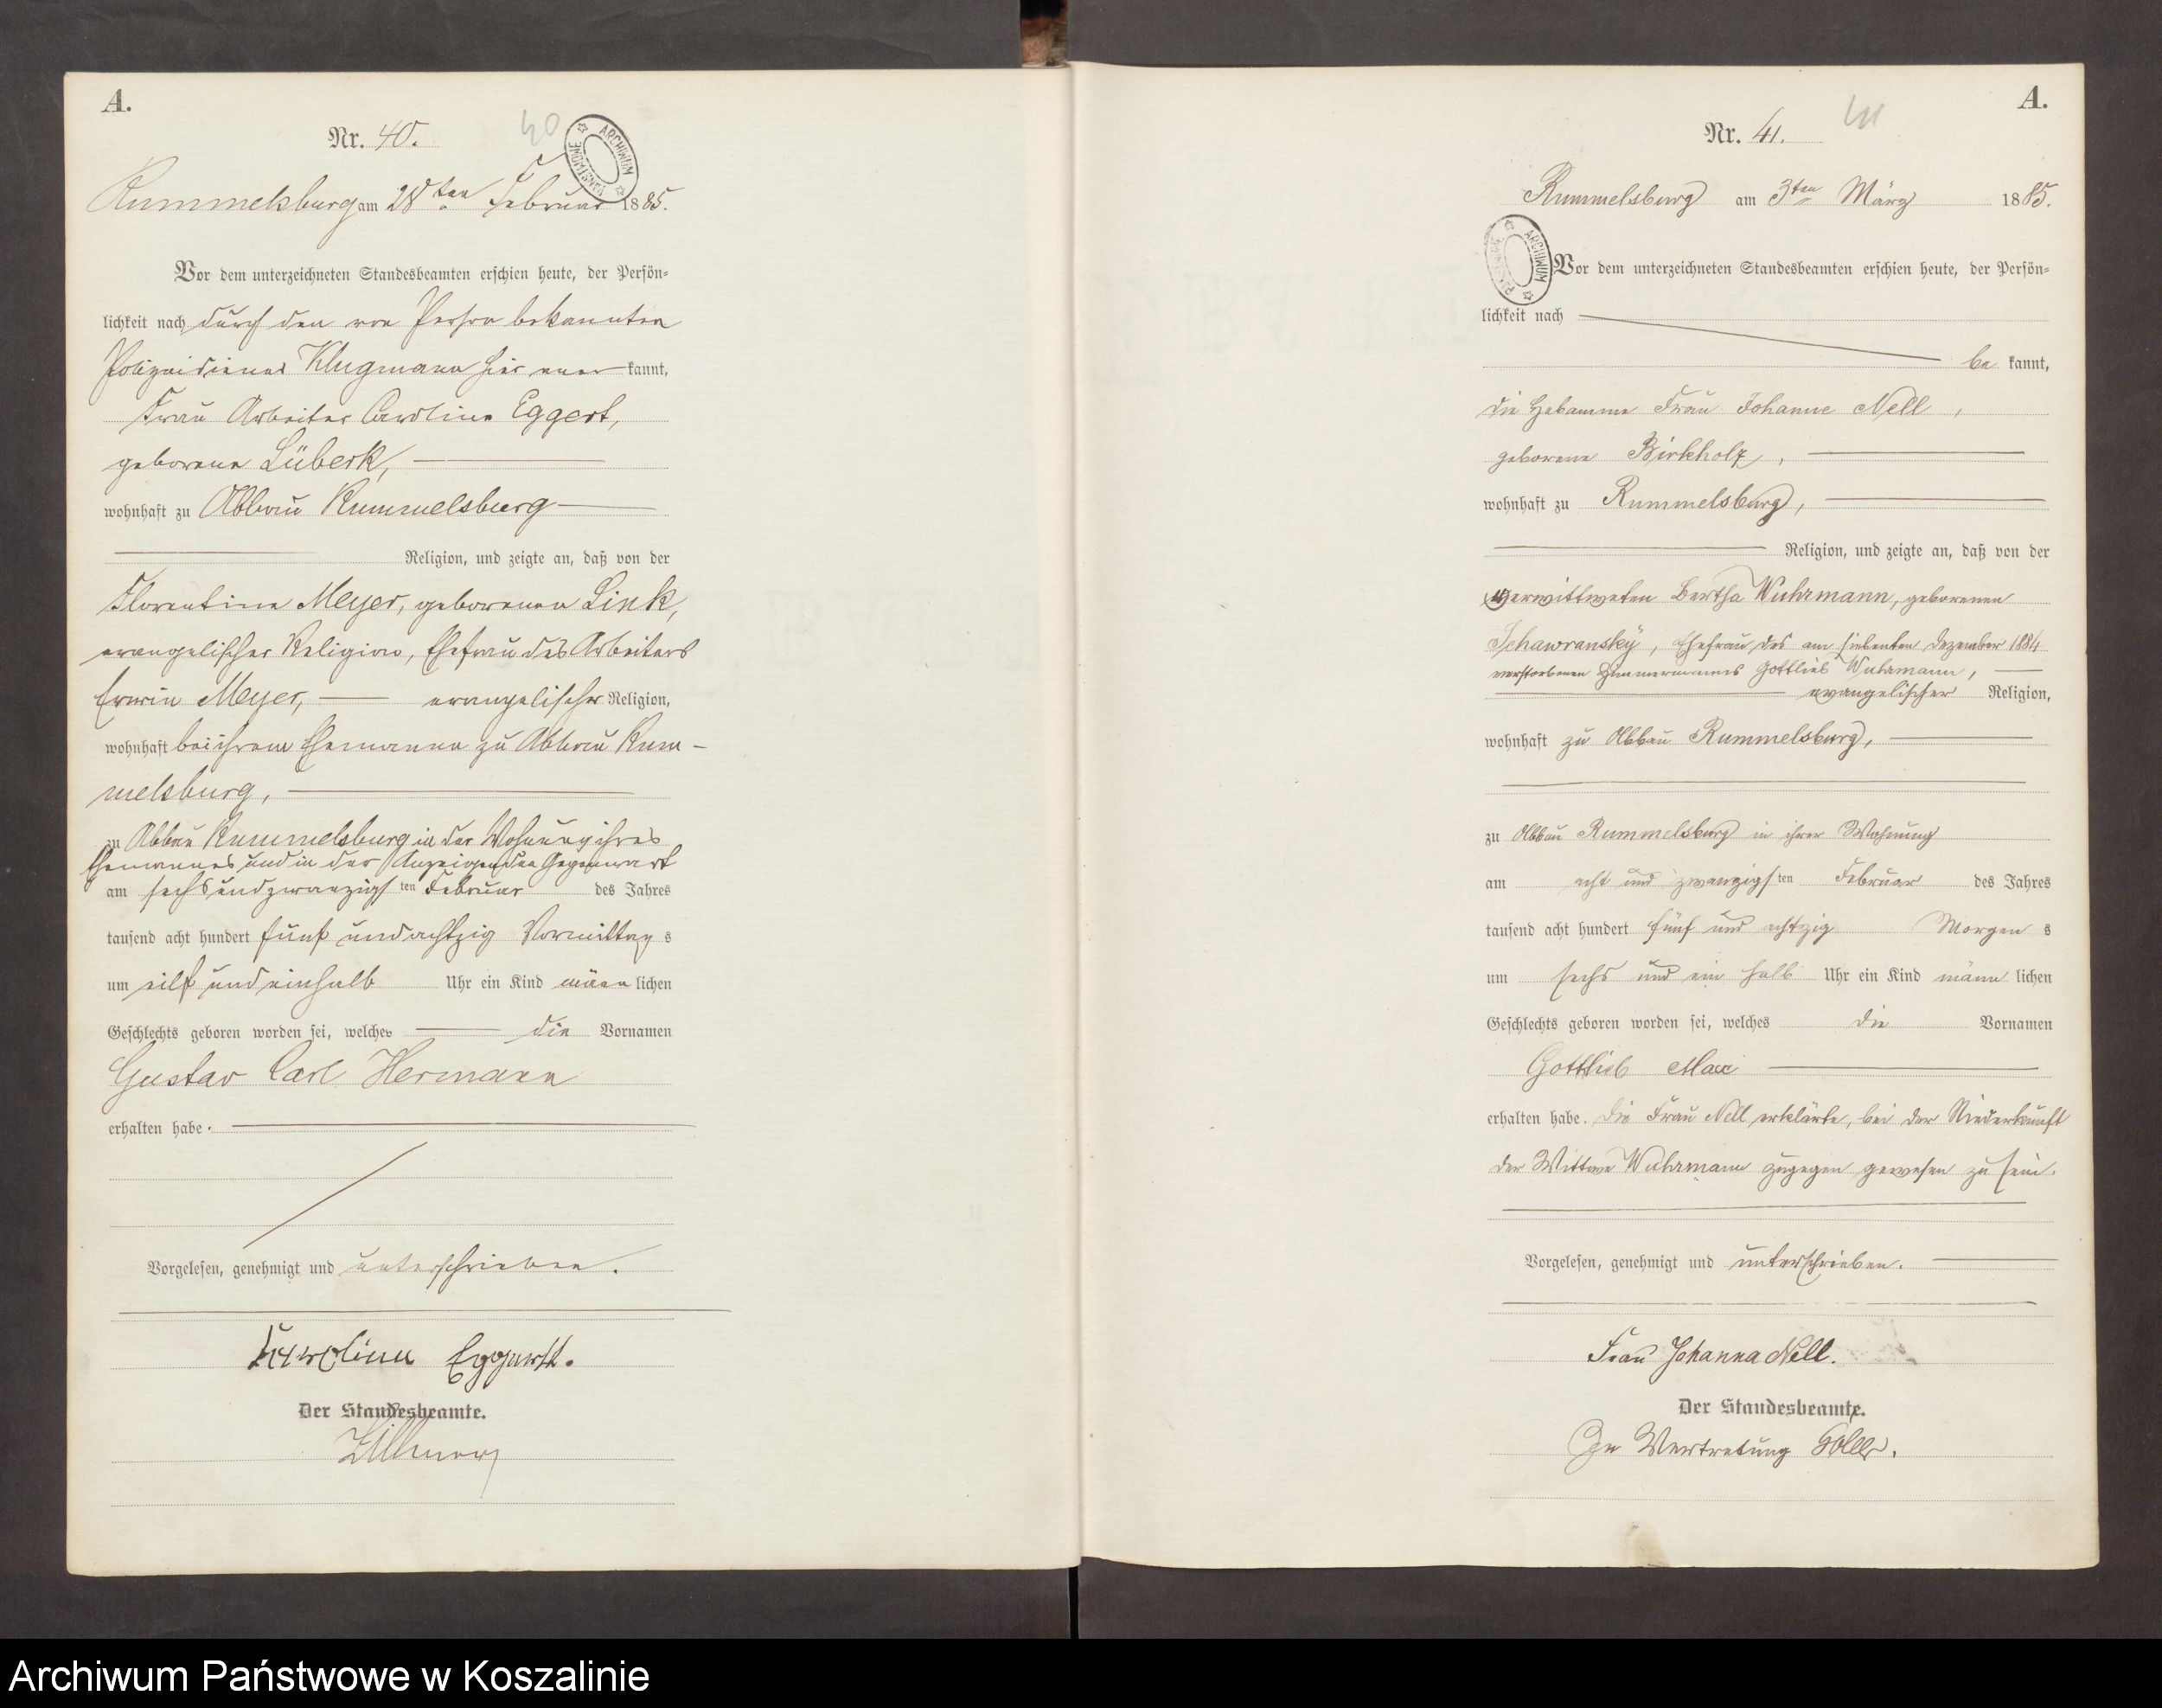 A.
Nr. 40.
40
ARCHIWUM PAŃSTWOWE
Rummelsburg am 28ten Februar 1885.
Vor dem unterzeichneten Standesbeamten erschien heute, der Persön-
lichkeit nach durch den von Person bekannten
Polizeidiener Klugmann hier aner kannt,
Frau Arbeiter Caroline Eggert,
geborene Lübeck,
wohnhaft zu Abbau Rummelsburg
Religion, und zeigte an, daß von der
Florentine Meyer, geborenen Link,
evangelischer Religion, Ehefrau des Arbeiters
Erwin Meyer, evangelischer Religion,
wohnhaft bei ihrem Ehemanne zu Abbau Rum-
melsburg,
zu Abbau Rummelsburg in der Wohnung ihres
Ehemannes und in der Anzeigenden Gegenwart
am sechsundzwanzigsten Februar des Jahres
tausend acht hundert fünf und achtzig Vormittags
um eilf und einhalb Uhr ein Kind männlichen
Geschlechts geboren worden sei, welches die Vornamen
Gustav Carl Hermann
erhalten habe.
Vorgelesen, genehmigt und unterschrieben.
Karoline Eggert.
Der Standesbeamte.
A.
Nr. 41.
41
ARCHIWUM PAŃSTWOWE
Rummelsburg am 3ten März 1885.
Vor dem unterzeichneten Standesbeamten erschien heute, der Persön-
lichkeit nach
be kannt,
die Hebamme Frau Johanne Nell,
geborene Birkholz,
wohnhaft zu Rummelsburg,
Religion, und zeigte an, daß von der
verwittweten Bertha Wuhrmann, geborenen
Schawransky, Ehefrau des am siebenten Dezember 1884
verstorbenen Zimmermanns Gottlieb Wuhrmann,
evangelischer Religion,
wohnhaft zu Abbau Rummelsburg,
zu Abbau Rummelsburg in ihrer Wohnung
am acht und zwanzigsten Februar des Jahres
tausend acht hundert fünf und achtzig Morgens
um sechs und ein halb Uhr ein Kind männlichen
Geschlechts geboren worden sei, welches die Vornamen
Gottlieb Max
erhalten habe. Die Frau Nell erklärte, bei der Niederkunft
der Wittwe Wuhrmann zugegen gewesen zu sein.
Vorgelesen, genehmigt und unterschrieben.
Frau Johanna Nell.
Der Standesbeamte.
In Vertretung
Archiwum Państwowe w Koszalinie